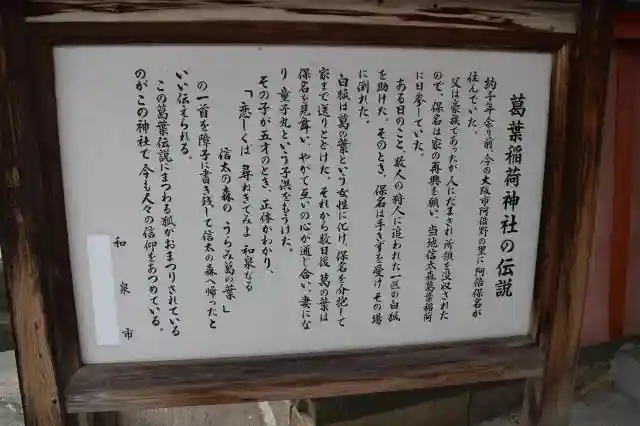 葛葉稲荷神社の伝説
約千年余り前、今の大阪市阿倍野の里に阿倍保名が
住んでいた。
父は豪族であったが人にだまされ所領を没収された
ので、保名は家の再興を願い、当地信太森葛葉稲荷
に日参していた。
ある日のこと、数人の狩人に追われた一匹の白狐
を助けた。そのとき、保名は手きずを受け、その場
に倒れた。
白狐は葛の葉という女性に化け、保名を介抱して
家まで送りとどけた。それから数日後、葛の葉は
保名を見舞い、やがて互いの心が通じ合い、妻にな
り童子丸という子供をもうけた。
その子が五才のとき、正体がわかり、
「恋しくば 尋ねきてみよ 和泉なる
信太の森の うらみ葛の葉」
の一首を障子に書き残して信太の森へ帰ったと
いい伝えられる。
この葛葉伝説にまつわる狐がおまつりされている
のがこの神社で、今も人々の信仰をあつめている。
和泉市